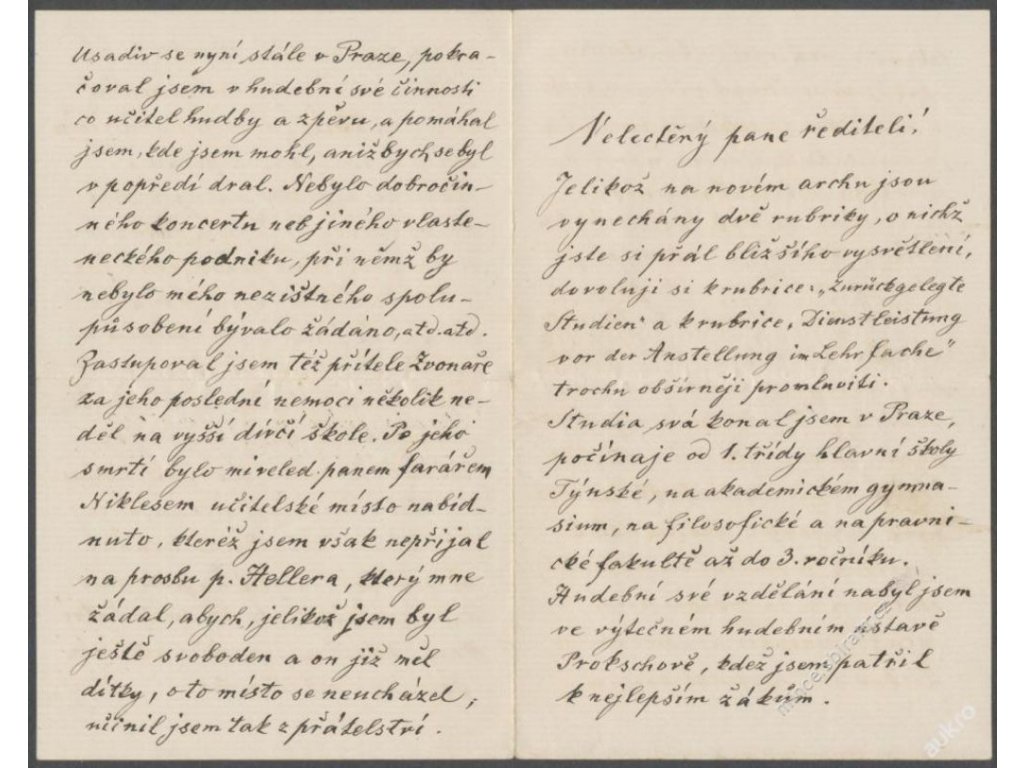 Usadiv se nyní stále v Praze, pokra-
čoval jsem v hudební své činnosti
co učitel hudby a zpěvu, a pomáhal
jsem, kde jsem mohl, aniž bych se byl
v popředí dral. Nebylo dobročin-
ného koncertu neb jiného vlaste-
neckého podniku, při němž by
nebylo mého nezištného spolu-
působení bývalo žádáno, atd. atd.
Zastupoval jsem též přítele Zvonaře
za jeho poslední nemoci několik ne-
děl na vyšší dívčí škole. Po jeho
smrti bylo mi veled. panem farářem
Niklesem učitelské místo nabíd-
nuto, kteréž jsem však nepřijal
na prosbu p. Hellera, který mne
žádal, abych, jelikož jsem byl
ještě svoboden a on již měl
dítky, o to místo se neucházel;
učinil jsem tak z přátelství.
Velectěný pane řediteli!
Jelikož na novém archu jsou
vynechány dvě rubriky, o nichž
jste si přál bližšího vysvětlení,
dovoluji si k rubrice: „Zurückgelegte
Studien" a k rubrice „Dienstleistung
vor der Anstellung im Lehrfache"
trochu obšírněji promluviti.
Studia svá konal jsem v Praze,
počínaje od 1. třídy hlavní školy
Týnské, na akademickém gymna-
sium, na filosofické a na právni-
cké fakultě až do 3. ročníku.
Hudební své vzdělání nabyl jsem
ve výtečném hudebním ústavě
Prokschově, kdež jsem patřil
k nejlepším žákům.
aukro